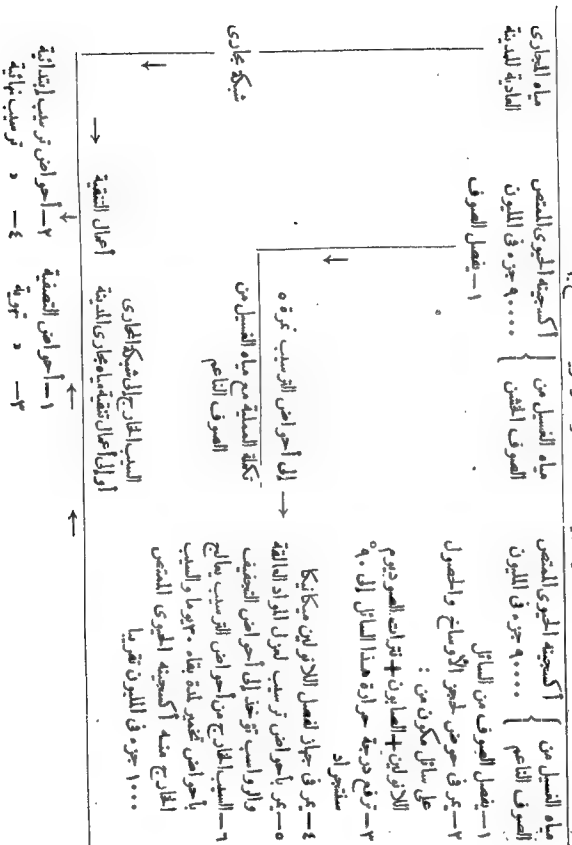 مياه الغسيل من
الصوف الناعم
أكسجينه الحيوى الممتص
٩٠٠٠ جزء فى المليون
١ — يفصل الصوف من السائل
٢ — يمر فى حوض لحجز الأوساخ والحصول
على سائل مكون من :
اللانولين + الصابون + نترات الصوديوم
٣ — ترفع درجة حرارة هذا السائل إلى ٩٠°
سنتجراد
٤ — يمر فى جهاز لفصل اللانولين ميكانيكا
٥ — يمر بأحواض ترسيب لعزل المواد العالقة
والرواسب تؤخذ إلى أحواض التجفيف
٦ — السيب الخارج من أحواض الترسيب يعالج
بأحواض تخمير لمدة بقاء ٣٠ يوما والسيب
الخارج منه أكسجينه الحيوى الممتص
١٠٠٠ جزء فى المليون تقريبا
مياه الغسيل من
الصوف الخشن
أكسجينه الحيوى الممتص
٩٠٠٠٠ جزء فى المليون
١ — يفصل الصوف
إلى أحواض الترسيب نمرة ٥
تكملة العملية مع مياه الغسيل من
الصوف الناعم
السيب الخارج إلى شبكة المجارى
أو إلى أعمال تنقية مياه مجارى المدينة
مياه المجارى
العادية للمدينة
شبكة مجارى
أعمال التنقية
١ — أحواض التصفية
٢ — أحواض ترسيب إبتدائية
٣ — » تهوية
٤ — » ترسيب نهائية